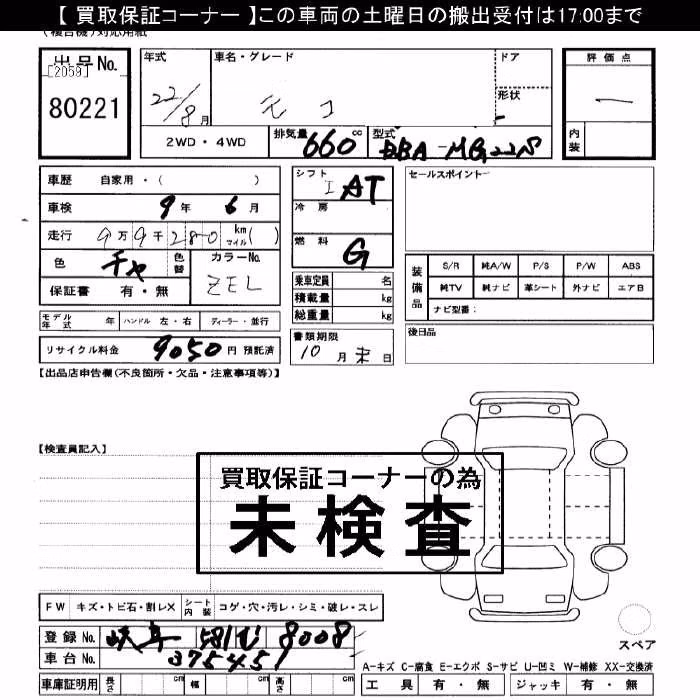 【 買取保証コーナー 】この車両の土曜日の搬出受付は17:00まで
(複合機)対応用紙
出品No. [2059] 80221
年式 22/8月
車名・グレード モコ
ドア
形状 -
評価点 一
内装
2WD ・ 4WD
排気量 660 cc
型式 DBA-MG22S
車歴 自家用・( )
車検 9年 6月
走行 9万9千280 km マイル( )
色 チャ
色替
カラーNo. ZEL
保証書 有・無
シフト I AT
冷房
燃料 G
乗車定員 名
積載量 kg
総重量 kg
セールスポイント
装備品 S/R 純A/W P/S P/W ABS
純TV 純ナビ 革シート 外ナビ エアB
ナビ型番:
モデル年式 年 ハンドル 左・右 ディーラー・並行
リサイクル料金 9050 円 預託済
書類期限 10月末日
後日品
【出品店申告欄(不良箇所・欠品・注意事項等)】
【検査員記入】
買取保証コーナーの為
未検査
FW キズ・トビ石・割レX シート内装 コゲ・穴・汚レ・シミ・破レ・スレ
登録No. 岐阜 581 む 8008
車台No. 375451
スペア
A-キズ C-腐食 E-エクボ S-サビ U-凹ミ W-補修 XX-交換済
車庫証明用 長さ cm 幅 cm 高さ cm
工具 有・無 ジャッキ 有・無